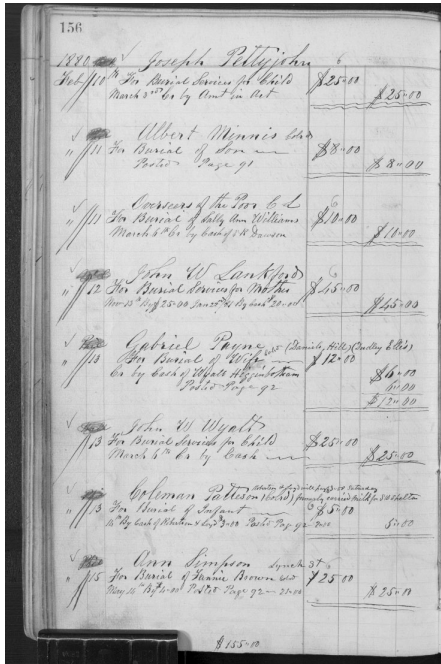 156
1880 Joseph Pettyjohn
Feb 10th For Burial Services for Child $25.00
March 2nd Cr by Amt in Act $25.00
Albert Minnis Cold
" 11 For Burial of Son $8.00
Posted Page 91 $8.00
Overseers of the Poor C L
" 11 For Burial of Sally Ann Williams $10.00
March 6th Cr by Cash of Dawson $10.00
John W Lankford
" 12 For Burial Services for Mother $45.00
Nov 13th By $25.00 By Cash 20.00 $45.00
Gabriel Payne Cold (Daniels Hill) (Dudley Ellis)
" 13 For Burial of Wife $12.00
Cr by Cash of Wyatt Higginbotham $6.00
Posted Page 92 6.00
$12.00
John W Wyatt
" 13 For Burial Services for Child $25.00
March 6th Cr by Cash $25.00
Coleman Patteson (Cold) formerly carried Mail for
" 13 For Burial of Infant $5.00
By Cash of 3.00 Postd Page 92 2.00 5.00
Ann Simpson Lynch St
" 15 For Burial of Fannie Brown Cold $25.00
May 14th By 4.00 Posted Page 92 21.00 $25.00
$155.00